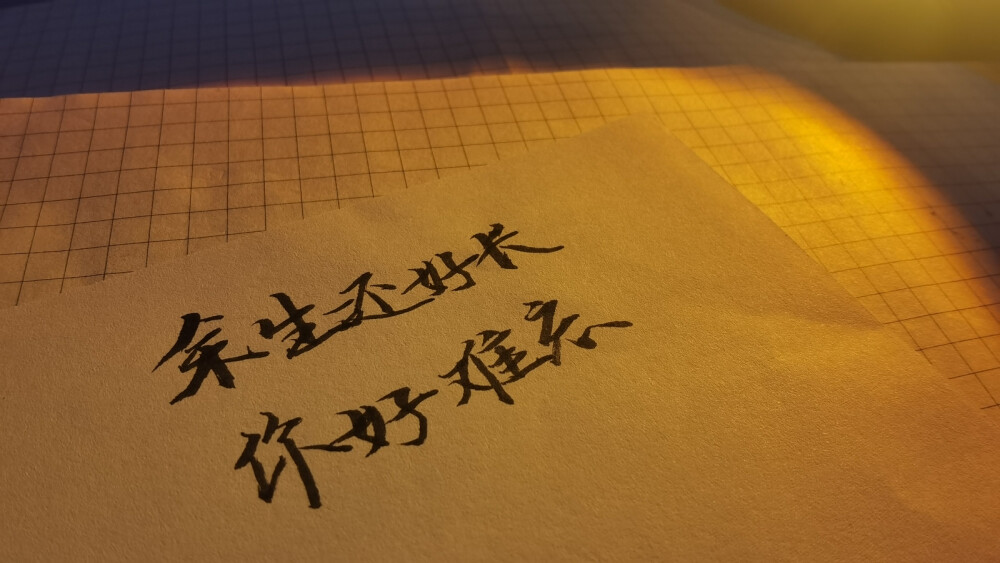 余生还好长
你好难忘